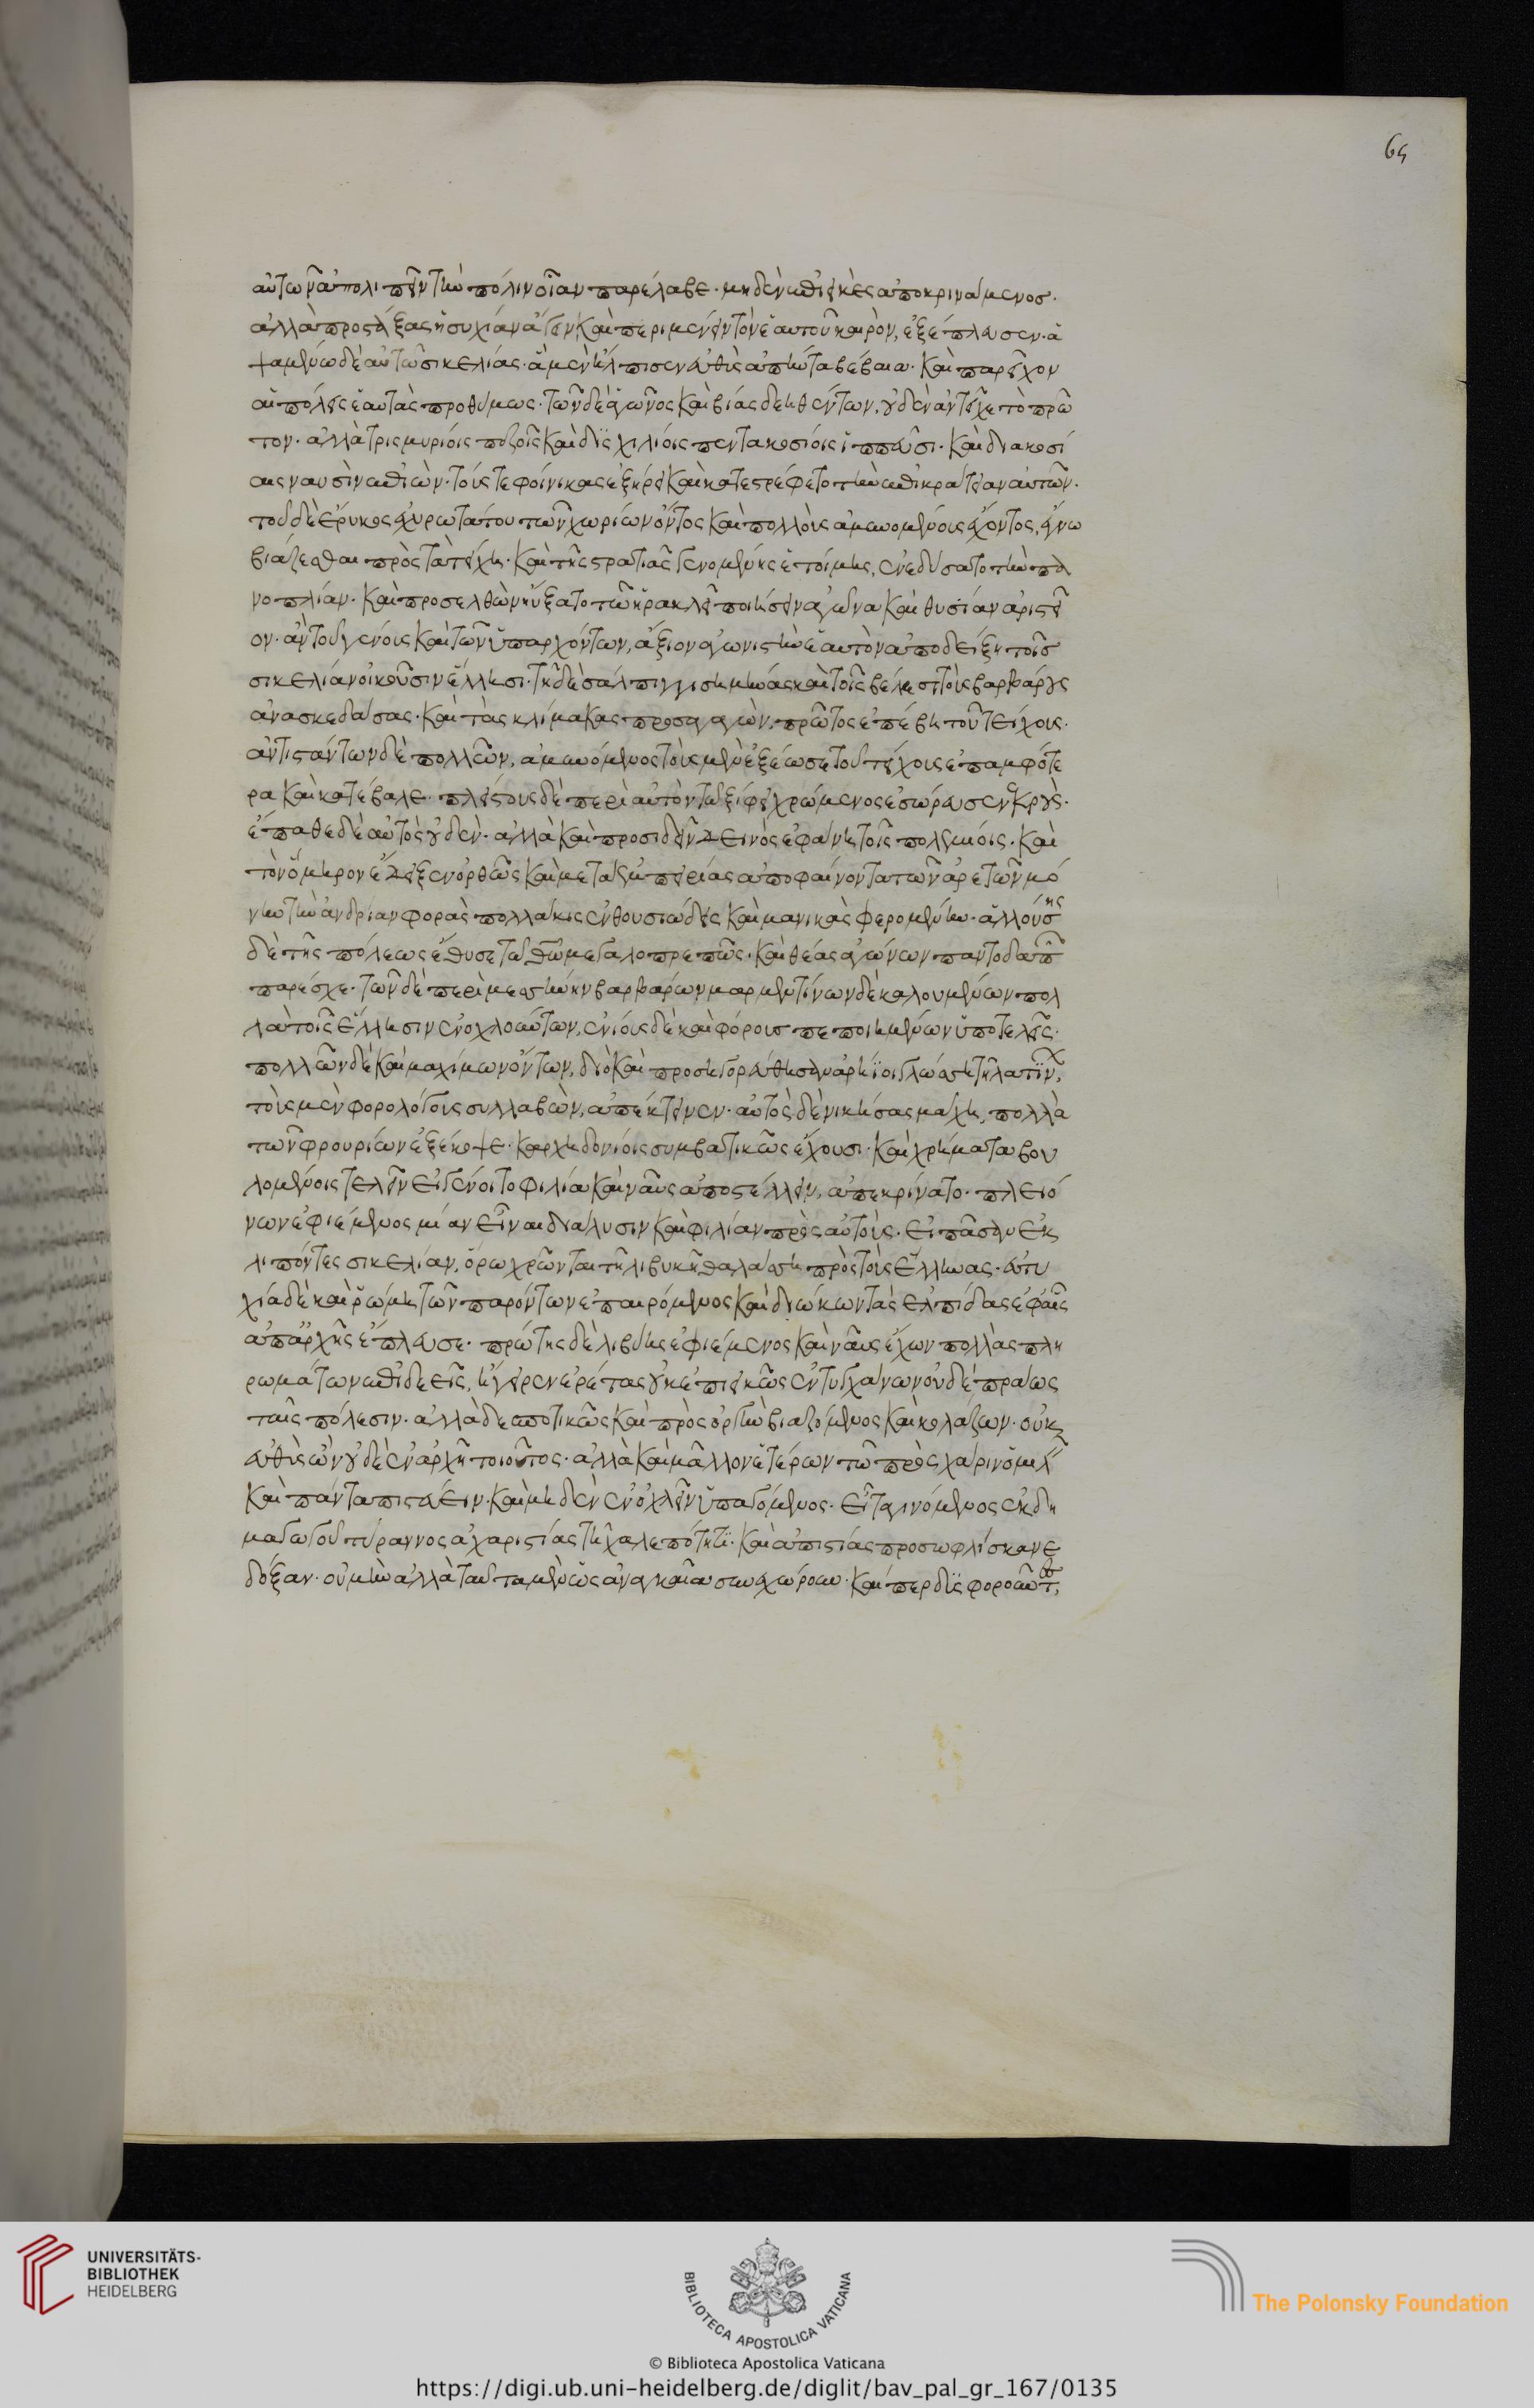 65
αὐτῶν ἀπολιπεῖν τὴν πόλιν οἵαν παρέλαβε· μηδὲν ἐπιεικὲς ἀποκρινάμενος·
ἀλλὰ προστάξας ἡσυχίαν ἄγειν, καὶ περιμένειν τὸν ἑαυτοῦ καιρὸν, ἐξέπλευσεν· ἁ
ψαμένω δὲ αὐτῶ σικελίας· ἃ μὲν ἤλπισεν εὐθὺς ἀπήντα βέβαια· καὶ παρεῖχον
αἱ πόλεις ἑαυτὰς προθύμως· τῶν δὲ ἀγῶνος καὶ βίας δεηθέντων, οὐδὲν ἀντεῖχε τὸ πρῶ
τον· ἀλλὰ τρισμυρίοις πεζοῖς καὶ δισχιλίοις πεντακοσίοις ἱππεῦσι· καὶ διακοσί
αις ναυσὶν ἐπιὼν· τούς τε φοίνικας ἐξήρει καὶ κατεστρέφετο τὴν ἐπικράτειαν αὐτῶν·
τοῦ δὲ ἔρυκος ἐχυρωτάτου τῶν χωρίων ὄντος καὶ πολλοὺς ἀμυνομένους ἔχοντος, ἔγνω
βιάζεσθαι πρὸς τὰ τείχη· καὶ τῆς στρατιᾶς γενομένης ἑτοίμης, ἐνεδύσατο τὴν πα
νοπλίαν· καὶ προσελθὼν ηὔξατο τῶ ἡρακλεῖ ποιήσειν ἀγῶνα καὶ θυσίαν ἀριστεῖ
ον· ἂν τοῦ γένους καὶ τῶν ὑπαρχόντων, ἄξιον ἀγωνιστὴν ἑαυτὸν ἀποδείξη τοῖς
σικελίαν οἰκοῦσιν ἕλλησι· τῆ δὲ σάλπιγγι σημήνας καὶ τοῖς βέλεσι τοὺς βαρβάρους
ἀνασκεδάσας· καὶ τὰς κλίμακας προσαγαγὼν, πρῶτος ἐπέβη τοῦ τείχους·
ἀντιστάντων δὲ πολλῶν, ἀμυνόμενος τοὺς μὲν ἐξέωσε τοῦ τείχους ἐπ᾽ ἀμφότε
ρα καὶ κατέβαλε· πλείστους δὲ περὶ αὐτὸν τῶ ξίφει χρώμενος ἐσώρευσεν νεκροὺς·
ἔπαθε δὲ αὐτὸς οὐδὲν· ἀλλὰ καὶ προσιδεῖν δεινὸς ἐφάνη τοῖς πολεμίοις· καὶ
τὸν ὅμηρον ἔδειξεν ὀρθῶς καὶ μετ᾽ ἐμπειρίας ἀποφαίνοντα τῶν ἀρετῶν μό
νην τὴν ἀνδρίαν φορὰς πολλάκις ἐνθουσιώδεις καὶ μανικὰς φερομένην· ἁλλούσης
δὲ τῆς πόλεως ἔθυσε τῶ θεῶ μεγαλοπρεπῶς· καὶ θέας ἀγώνων παντοδαπῶν
παρέσχε· τῶν δὲ περὶ μεσσήνην βαρβάρων μαμερτίνων δὲ καλουμένων πολ
λὰ τοῖς ἕλλησιν ἐνοχλούντων, ἐνίους δὲ καὶ φόρου πεποιημένων ὑποτελεῖς·
πολλῶν δὲ καὶ μαχίμων ὄντων, διὸ καὶ προσηγορεύθησαν ἀρήϊοι γλώσση τῆ λατίνων,
τοὺς μὲν φορολόγους συλλαβὼν, ἀπέκτεινεν· αὐτοὺς δὲ νικήσας μάχη, πολλὰ
τῶν φρουρίων ἐξέκοψε· καρχηδονίοις συμβατικῶς ἔχουσι· καὶ χρήματα βου
λομένοις τελεῖν εἰ γένοιτο φιλία καὶ ναῦς ἀποστέλλειν, ἀπεκρίνατο· πλειό
νων ἐφιέμενος μίαν εἶναι διάλυσιν καὶ φιλίαν πρὸς αὐτοὺς· εἰ πᾶσαν ἐκ
λιπόντες σικελίαν, ὅρω χρῶνται τῆ λιβυκῆ θαλάσση πρὸς τοὺς ἕλληνας· εὐτυ
χία δὲ καὶ ῥώμη τῶν παρόντων ἐπαιρόμενος καὶ διώκων τὰς ἐλπίδας ἐφ᾽ αἷς
ἀπ᾽ ἀρχῆς ἔπλευσε· πρώτης δὲ λιβύης ἐφιέμενος καὶ ναῦς ἔχων πολλὰς πλη
ρωμάτων ἐπιδεεῖς, ἤγειρεν ἐρέτας οὐκ ἐπιεικῶς ἐντυγχάνων οὐδὲ πράως
ταῖς πόλεσιν· ἀλλὰ δεσποτικῶς καὶ πρὸς ὀργὴν βιαζόμενος καὶ κολάζων· οὐκ
εὐθὺς ὢν οὐδὲ ἐν ἀρχῆ τοιοῦτος· ἀλλὰ καὶ μᾶλλον ἑτέρων τῶ πρὸς χάριν ὁμιλεῖν
καὶ πάντα πιστεύειν· καὶ μηδὲν ἐνοχλεῖν ὑπαγόμενος· εἶτα γινόμενος ἐκ δη
μαγωγοῦ τύραννος ἀχαριστίας τῆ χαλεπότητι· καὶ ἀπιστίας προσωφλίσκανε
δόξαν· οὐ μὴν ἀλλὰ ταῦτα μὲν ὡς ἀναγκαῖα συνεχώρουν· καίπερ δυσφοροῦντες,
UNIVERSITÄTS-
BIBLIOTHEK
HEIDELBERG
BIBLIOTECA APOSTOLICA VATICANA
The Polonsky Foundation
© Biblioteca Apostolica Vaticana
https://digi.ub.uni-heidelberg.de/diglit/bav_pal_gr_167/0135